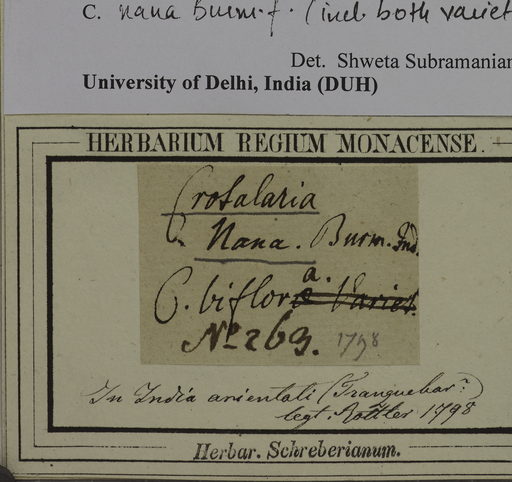 C. nana Burm.f. (incl. both variet
Det. Shweta Subramanian
University of Delhi, India (DUH)
HERBARIUM REGIUM MONACENSE.
Crotalaria
C. Nana. Burm. Ind.
a.
C. biflora Variet.
No. 263. 1798
In India orientali (Tranquebar?)
legt. Rottler 1798
Herbar. Schreberianum.